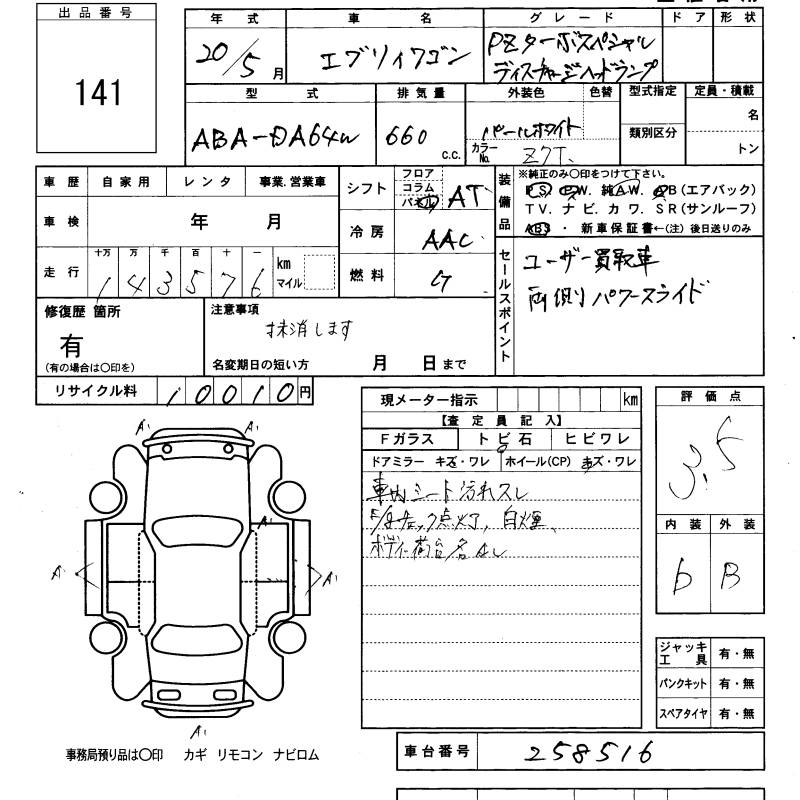 出品番号
141
年式 車名 グレード ドア 形状
20/5月 エブリィワゴン PZターボスペシャル
ディスチャージヘッドランプ
型式 排気量 外装色 色替 型式指定 定員・積載
ABA-DA64W 660 c.c. パールホワイト 類別区分 名
カラーNo. Z7T. トン
車歴 自家用 レンタ 事業.営業車
車検 年 月
走行 十万 万 千 百 十 一
143576 km マイル
シフト フロア コラム パネル AT
冷房 AAC
燃料 G
装備品
※純正のみ〇印をつけて下さい。
P S. P W. 純A W. A B(エアバック)
T V. ナ ビ. カ ワ. S R(サンルーフ)
ABS ・ 新車保証書←(注) 後日送りのみ
セールスポイント
ユーザー買取車
両側パワースライド
修復歴 箇所
有
(有の場合は〇印を)
注意事項
抹消します
名変期日の短い方 月 日まで
リサイクル料 10010円
現メーター指示 km
【査定員記入】
Fガラス トビ石 ヒビワレ
ドアミラー キズ・ワレ ホイール(CP) キズ・ワレ
車内シート汚れスレ
チェック点灯、白煙、
ボディー
評価点
3.5
内装 外装
b B
A' A' A' A' A' A'
ジャッキ工具 有・無
パンクキット 有・無
スペアタイヤ 有・無
事務局預り品は〇印 カギ リモコン ナビロム
車台番号 258516